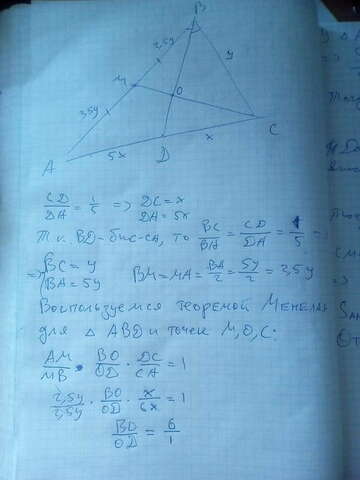 B
2,5y
y
M
O
2,5y
A
5x
D
x
C
CD/DA = 1/5 => DC = x
DA = 5x
Т.к. BD - бис-са, то BC/BA = CD/DA = 1/5 =>
=> BC = y
BA = 5y
BM = MA = BA/2 = 5y/2 = 2,5y
Воспользуемся теоремой Менелая
для △ ABD и точек M, O, C:
AM/MB · BO/OD · DC/CA = 1
2,5y/2,5y · BO/OD · x/6x = 1
BO/OD = 6/1